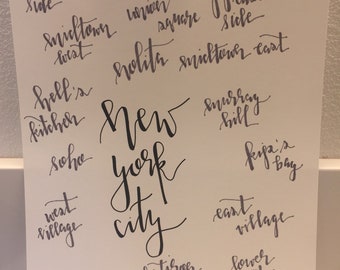 side
union
square
side
midtown
west
nolita
midtown east
hell's
kitchen
new
york
city
murray
hill
soho
kip's
bay
west
village
east
village
lower